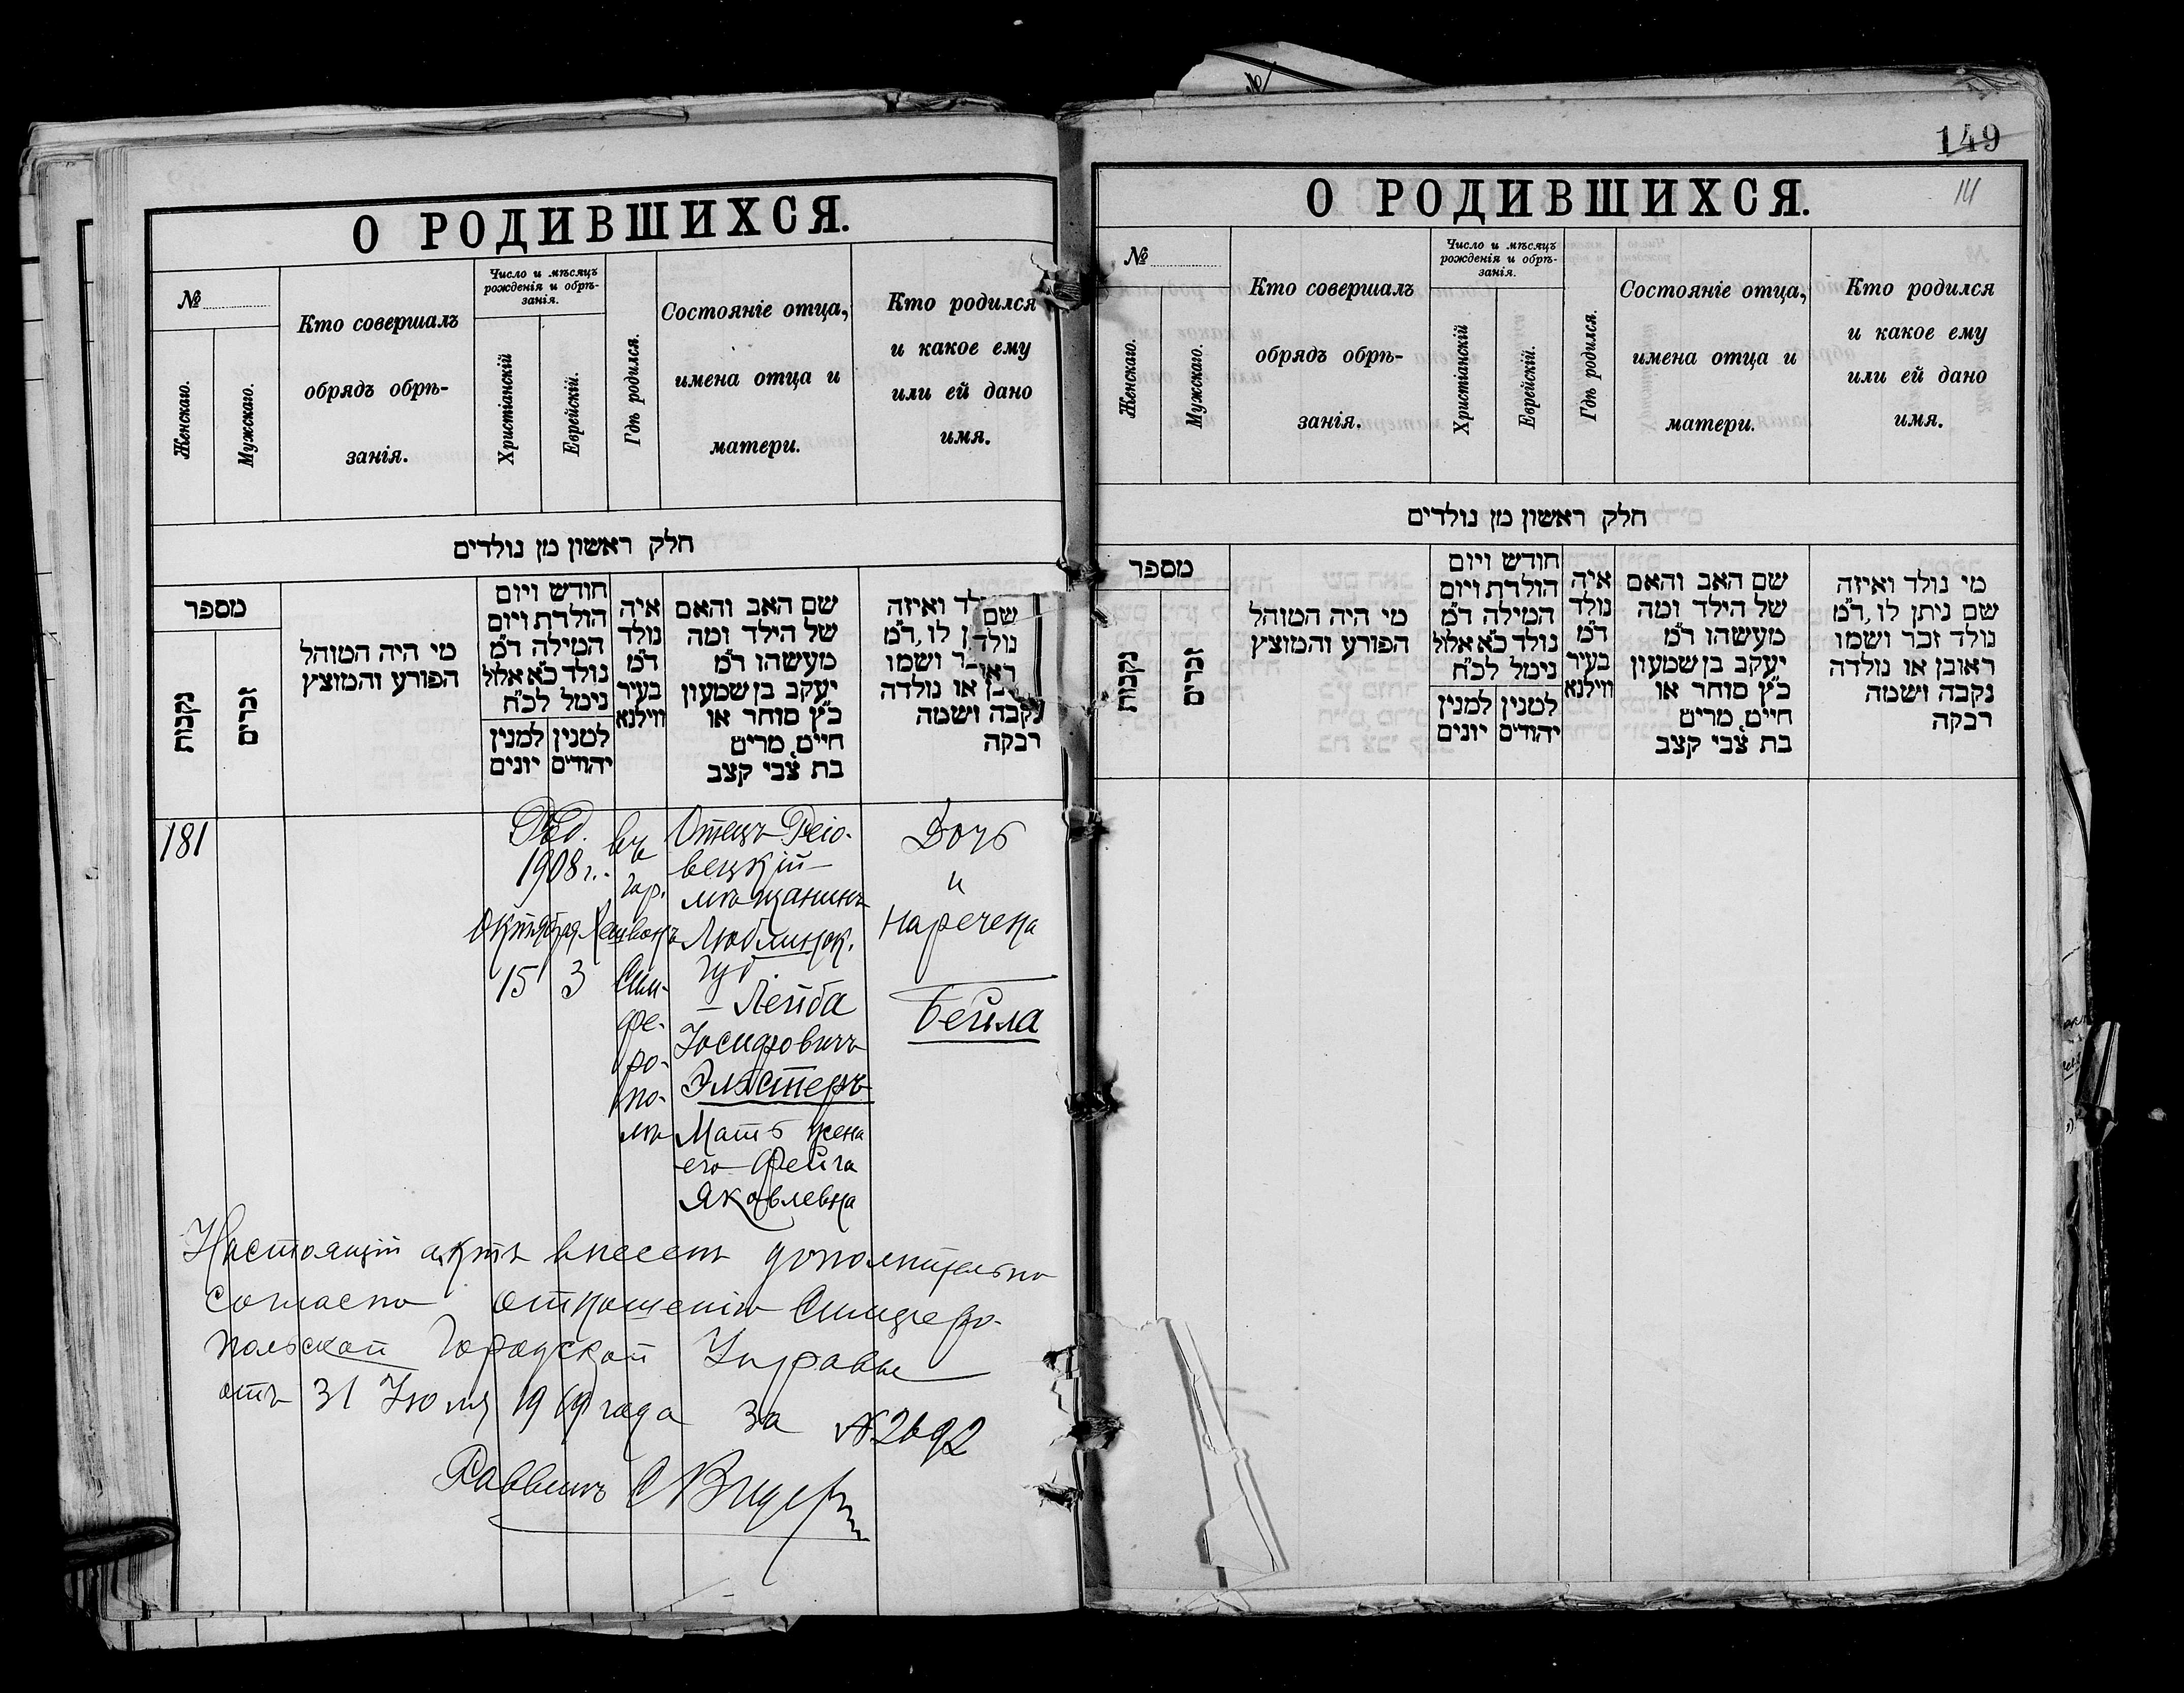 О РОДИВШИХСЯ.
№
Женскаго.
Мужскаго.
Кто совершалъ
обрядъ обрѣ-
занія.
Число и мѣсяцъ
рожденія и обрѣ-
занія.
Христіанскій
Еврейскій.
Гдѣ родился.
Состояніе отца,
имена отца и
матери.
Кто родился
и какое ему
или ей дано
имя.
חלק ראשון מן נולדים
מספר
נקבות
זכרים
מי היה המוהל
הפורע והמוצץ
חודש ויום
הולדת ויום
המילה ד"מ
נולד כ"א אלול
נימל לכ"ח
למנין יונים
למנין יהודים
איה
נולד
ד"מ
בעיר
ווילנא
שם האב והאם
של הילד ומה
מעשהו ד"מ
יעקב בן שמעון
כ"ץ סוחר או
חיים, מרים
בת צבי קצב
לד ואיזה
שם
ן לו, ד"מ
נולד
ר ושמו
ראוב
בן או נולדה
נקבה ושמה
רבקה
181
1908 г.
Октября
15
3
въ
гор.
Сим-
фе-
ро-
по-
лѣ
Отецъ Рейо-
вецкій
мѣщанинъ
Люблинск.
губ.
Лейба
Іосифовичъ
Эльстеръ
Мать жена
его Фейга
Яковлевна
Дочь
и
наречена
Бейла
Настоящій актъ внесенъ дополнительно
согласно отношенію Симферо-
польской Городской Управы
отъ 31 Іюля 19 года за № 2692
Раввинъ
149
О РОДИВШИХСЯ.
№
Женскаго.
Мужскаго.
Кто совершалъ
обрядъ обрѣ-
занія.
Число и мѣсяцъ
рожденія и обрѣ-
занія.
Христіанскій
Еврейскій.
Гдѣ родился.
Состояніе отца,
имена отца и
матери.
Кто родился
и какое ему
или ей дано
имя.
חלק ראשון מן נולדים
מספר
נקבות
זכרים
מי היה המוהל
הפורע והמוצץ
חודש ויום
הולדת ויום
המילה ד"מ
נולד כ"א אלול
נימל לכ"ח
למנין יונים
למנין יהודים
איה
נולד
ד"מ
בעיר
ווילנא
שם האב והאם
של הילד ומה
מעשהו ד"מ
יעקב בן שמעון
כ"ץ סוחר או
חיים, מרים
בת צבי קצב
מי נולד ואיזה
שם ניתן לו, ד"מ
נולד זכר ושמו
ראובן או נולדה
נקבה ושמה
רבקה